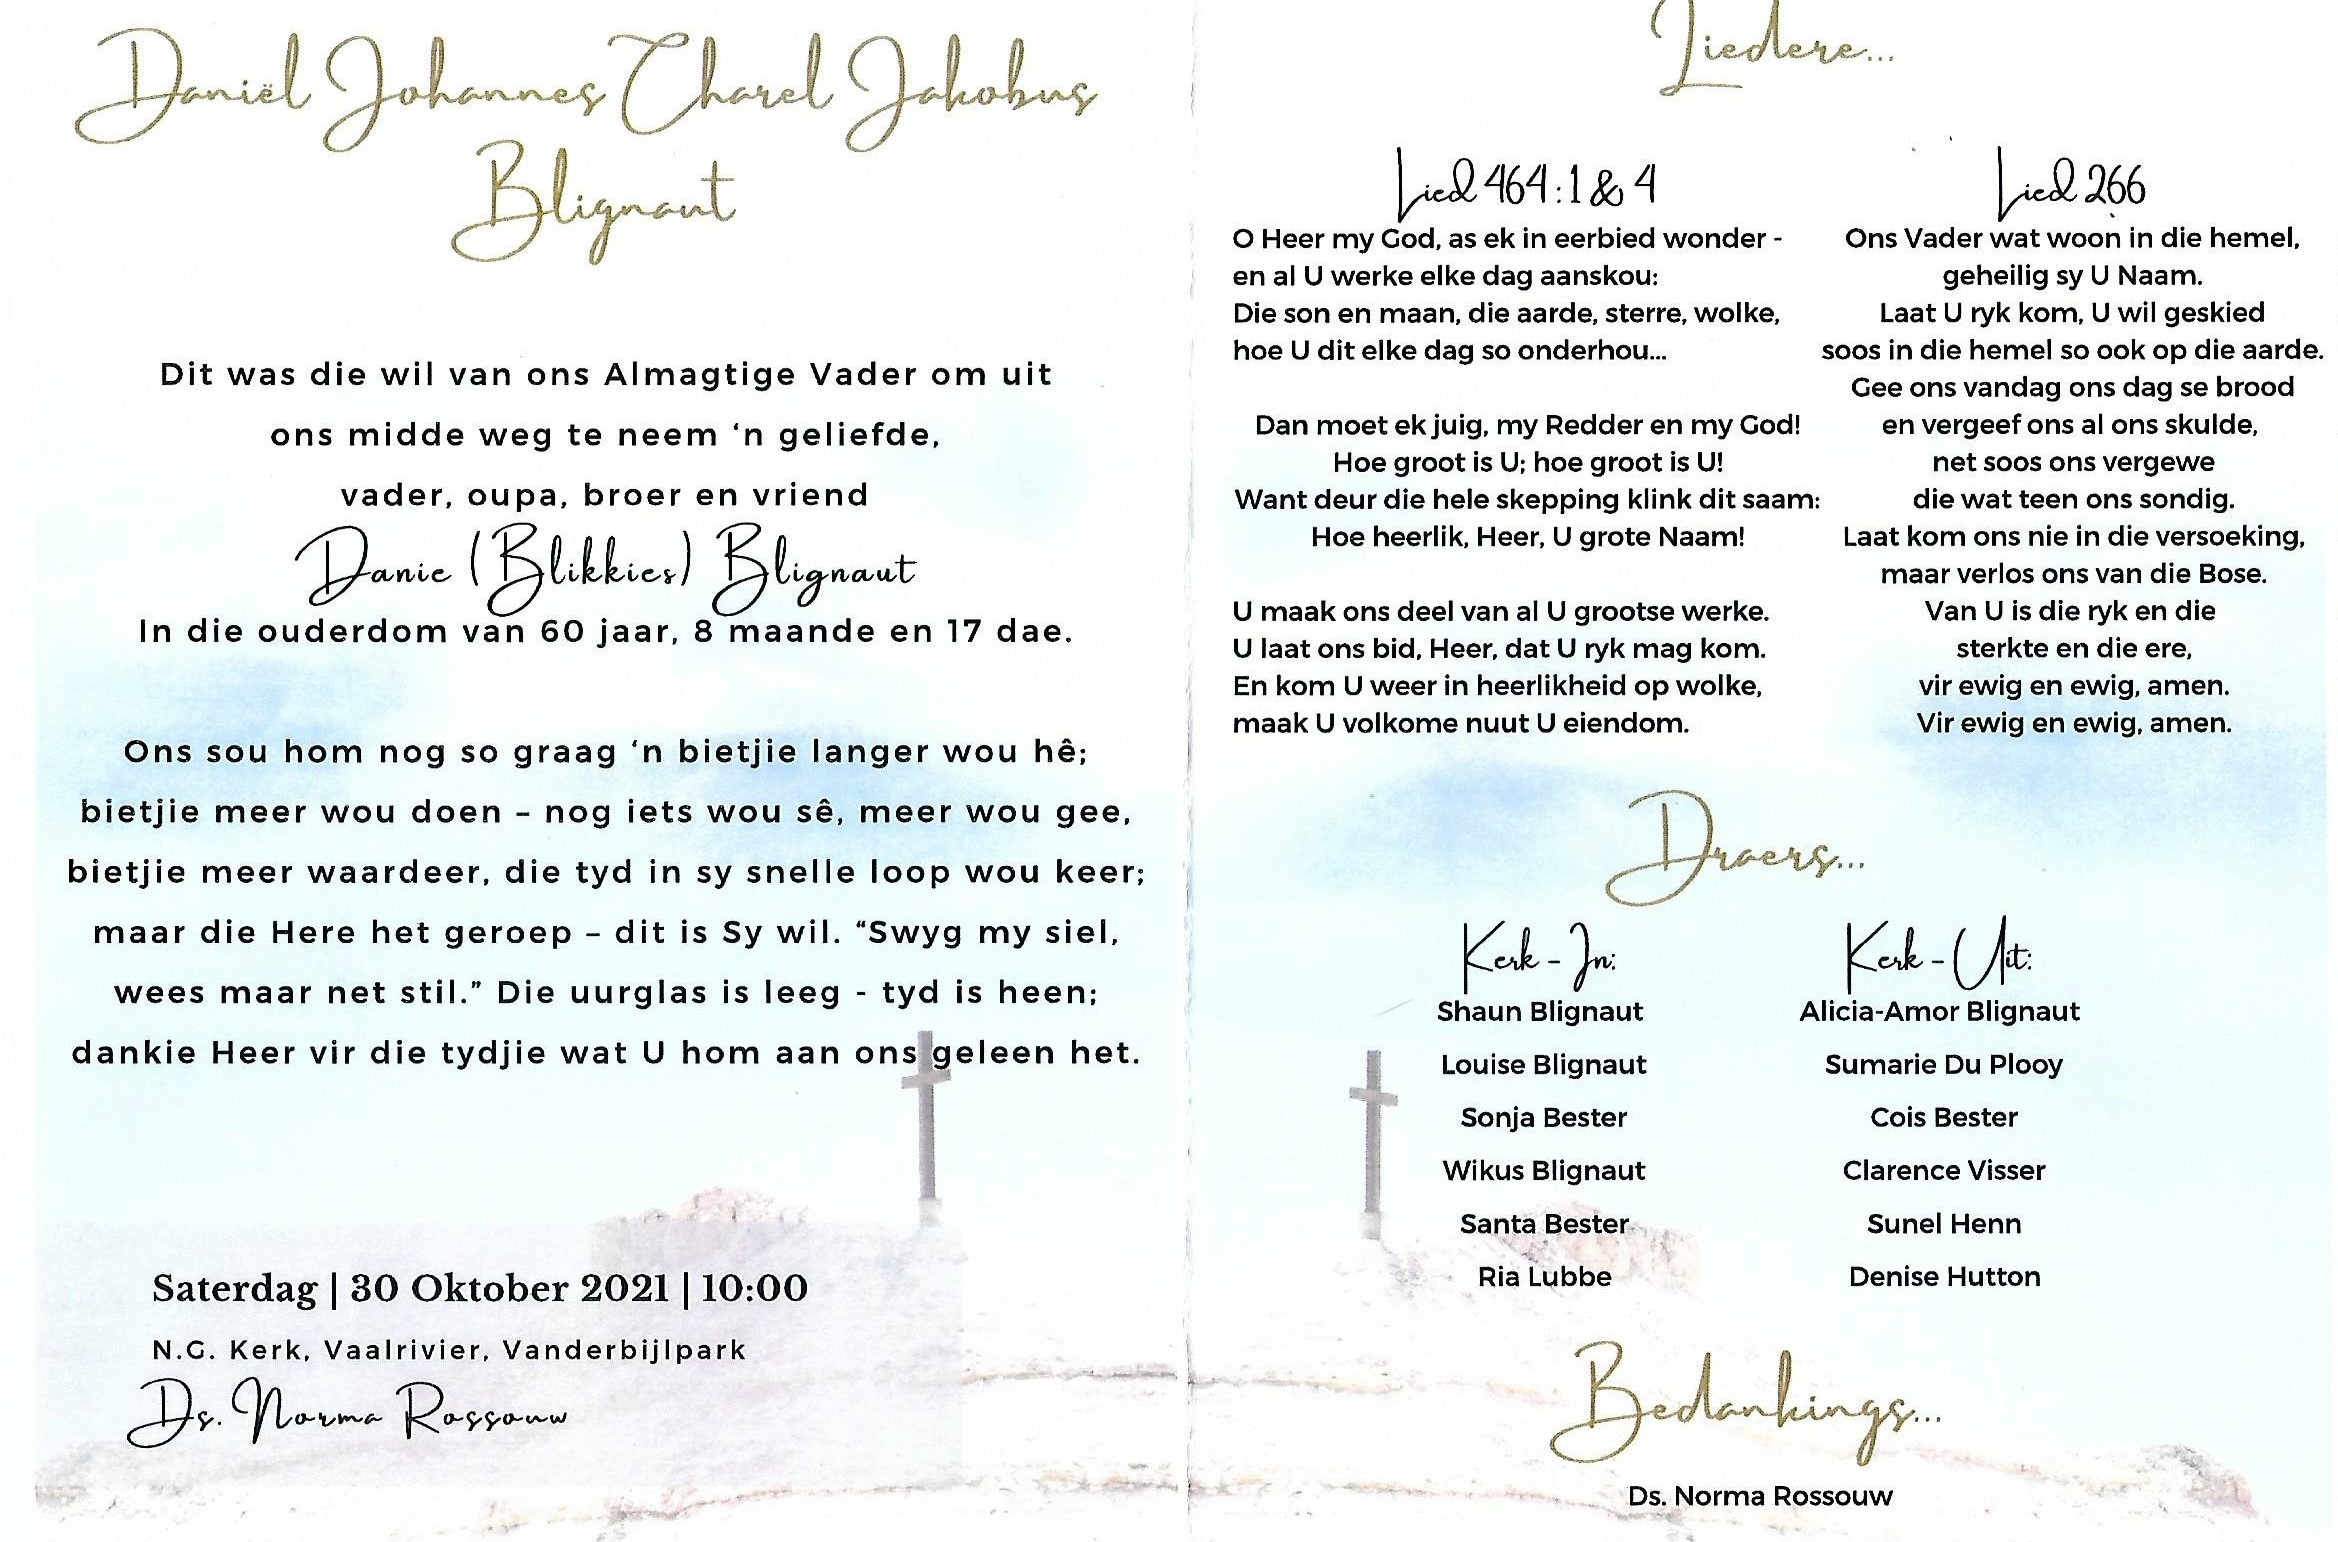 Daniël Johannes Charel Jakobus
Blignaut
Dit was die wil van ons Almagtige Vader om uit
ons midde weg te neem ‘n geliefde,
vader, oupa, broer en vriend
Danie (Blikkies) Blignaut
In die ouderdom van 60 jaar, 8 maande en 17 dae.
Ons sou hom nog so graag ‘n bietjie langer wou hê;
bietjie meer wou doen – nog iets wou sê, meer wou gee,
bietjie meer waardeer, die tyd in sy snelle loop wou keer;
maar die Here het geroep – dit is Sy wil. “Swyg my siel,
wees maar net stil.” Die uurglas is leeg - tyd is heen;
dankie Heer vir die tydjie wat U hom aan ons geleen het.
Saterdag | 30 Oktober 2021 | 10:00
N.G. Kerk, Vaalrivier, Vanderbijlpark
Ds. Norma Rossouw
Liedere...
Lied 464:1 & 4
O Heer my God, as ek in eerbied wonder -
en al U werke elke dag aanskou:
Die son en maan, die aarde, sterre, wolke,
hoe U dit elke dag so onderhou...
Dan moet ek juig, my Redder en my God!
Hoe groot is U; hoe groot is U!
Want deur die hele skepping klink dit saam:
Hoe heerlik, Heer, U grote Naam!
U maak ons deel van al U grootse werke.
U laat ons bid, Heer, dat U ryk mag kom.
En kom U weer in heerlikheid op wolke,
maak U volkome nuut U eiendom.
Lied 266
Ons Vader wat woon in die hemel,
geheilig sy U Naam.
Laat U ryk kom, U wil geskied
soos in die hemel so ook op die aarde.
Gee ons vandag ons dag se brood
en vergeef ons al ons skulde,
net soos ons vergewe
die wat teen ons sondig.
Laat kom ons nie in die versoeking,
maar verlos ons van die Bose.
Van U is die ryk en die
sterkte en die ere,
vir ewig en ewig, amen.
Vir ewig en ewig, amen.
Draers...
Kerk - In:
Shaun Blignaut
Louise Blignaut
Sonja Bester
Wikus Blignaut
Santa Bester
Ria Lubbe
Kerk - Uit:
Alicia-Amor Blignaut
Sumarie Du Plooy
Cois Bester
Clarence Visser
Sunel Henn
Denise Hutton
Bedankings...
Ds. Norma Rossouw